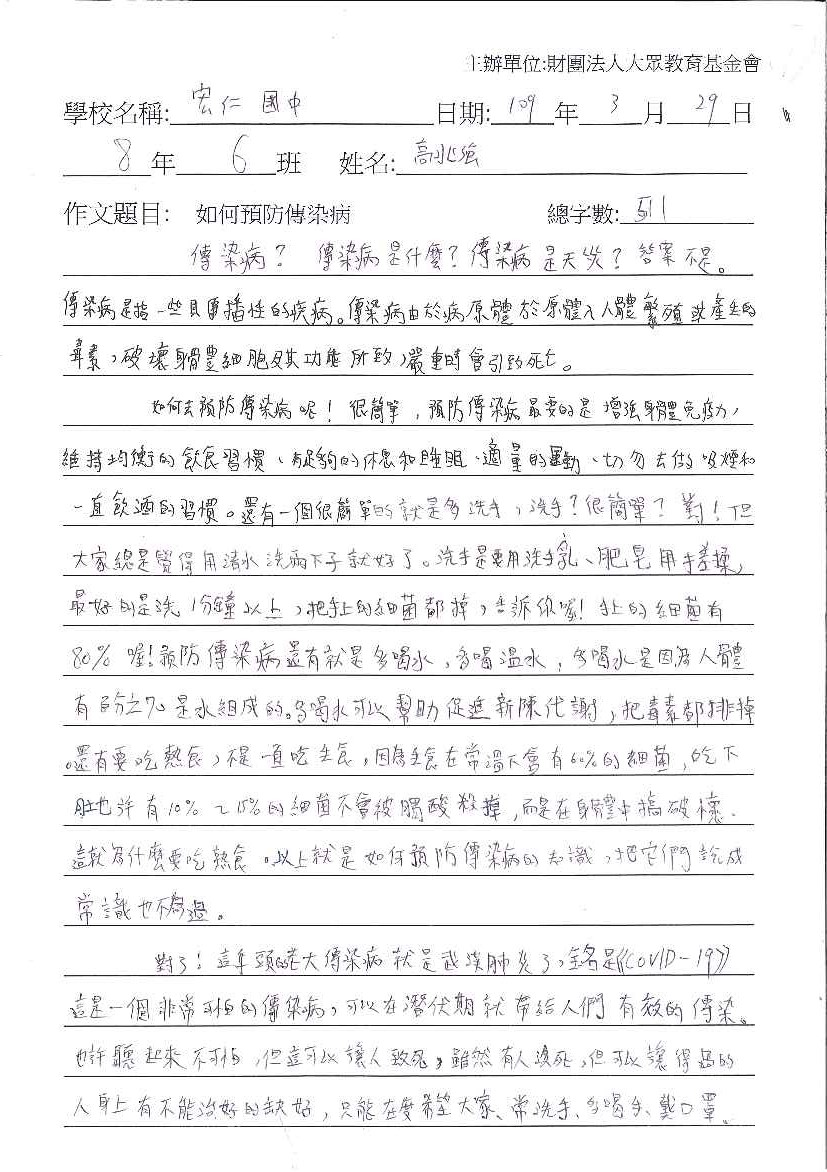 主辦單位:財團法人大眾教育基金會
學校名稱: 宏仁國中 日期: 109 年 3 月 29 日
8 年 6 班 姓名: 高兆強
作文題目: 如何預防傳染病 總字數: 511
傳染病? 傳染病是什麼?傳染病是天災?答案不是。
傳染病是指一些具傳播性的疾病。傳染病由於病原體於原體入人體繁殖或產生的
毒素,破壞身體豐細胞及其功能所致,嚴重時會引致死亡。
如何去預防傳染病呢!很簡單,預防傳染病最要的是增強身體免疫力,
維持均衡的飲食習慣、有足夠的休息和睡眠、適量的運動、切勿去做吸煙和
一直飲酒的習慣。還有一個很簡單的就是多洗手,洗手?很簡單?對!但
大家總是覺得用清水洗兩下子就好了。洗手是要用洗手乳、肥皂用手搓揉,
最好的是洗1分鐘以上,把手上的細菌都掉,告訴你喔!手上的細菌有
80%喔!預防傳染病還有就是多喝水,多喝溫水,多喝水是因為人體
有百分之70是水組成的。多喝水可以幫助促進新陳代謝,把毒素都排掉
。還有要吃熱食,不是一直吃生食,因為生食在常溫下會有60%的細菌,吃下
肚也許有10%~15%的細菌不會被胃酸殺掉,而是在身體中搞破壞、
這就為什麼要吃熱食。以上就是如何預防傳染病的知識,把它們說成
常識也不為過。
對了!這年頭的老大傳染病就是武漢肺炎了,全名是《COVID-19》
這是一個非常可怕的傳染病,可以在潛伏期就帶給人們有效的傳染。
也許聽起來不可怕,但這可以讓人致死,雖然有人沒死,但可以讓得病的
人身上有不能治好的缺好,只能在度希望大家、常洗手、多喝手、戴口罩。